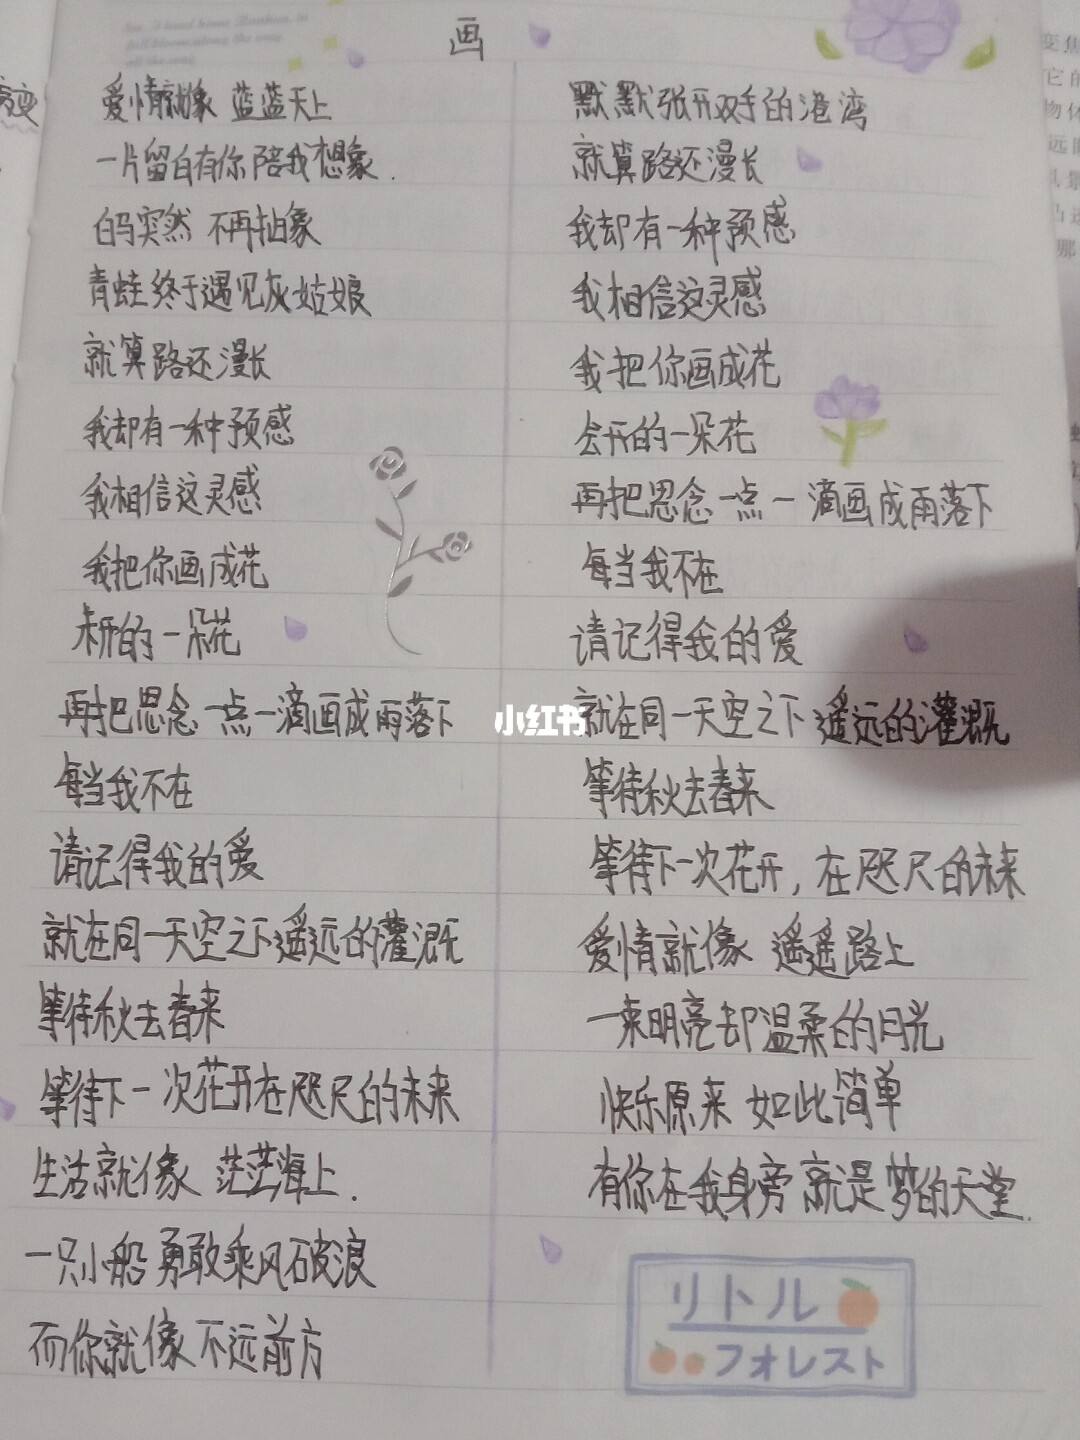 画
爱情就像 蓝蓝天上
一片留白有你陪我想象.
白马突然 不再抽象
青蛙终于遇见灰姑娘
就算路还漫长
我却有一种预感
我相信这灵感
我把你画成花
未开的一朵花
再把思念一点一滴画成雨落下
每当我不在
请记得我的爱
就在同一天空之下遥远的灌溉
等待秋去春来
等待下一次花开在咫尺的未来
生活就像 茫茫海上.
一只小船勇敢乘风破浪
而你就像不远前方
默默张开双手的港湾
就算路还漫长
我却有一种预感
我相信这灵感
我把你画成花
会开的一朵花
再把思念一点一滴画成雨落下
每当我不在
请记得我的爱
就在同一天空之下遥远的灌溉
等待秋去春来
等待下一次花开,在咫尺的未来
爱情就像 遥遥路上
一束明亮却温柔的月光
快乐原来 如此简单
有你在我身旁 就是梦的天堂.
リトル
フォレスト
小红书